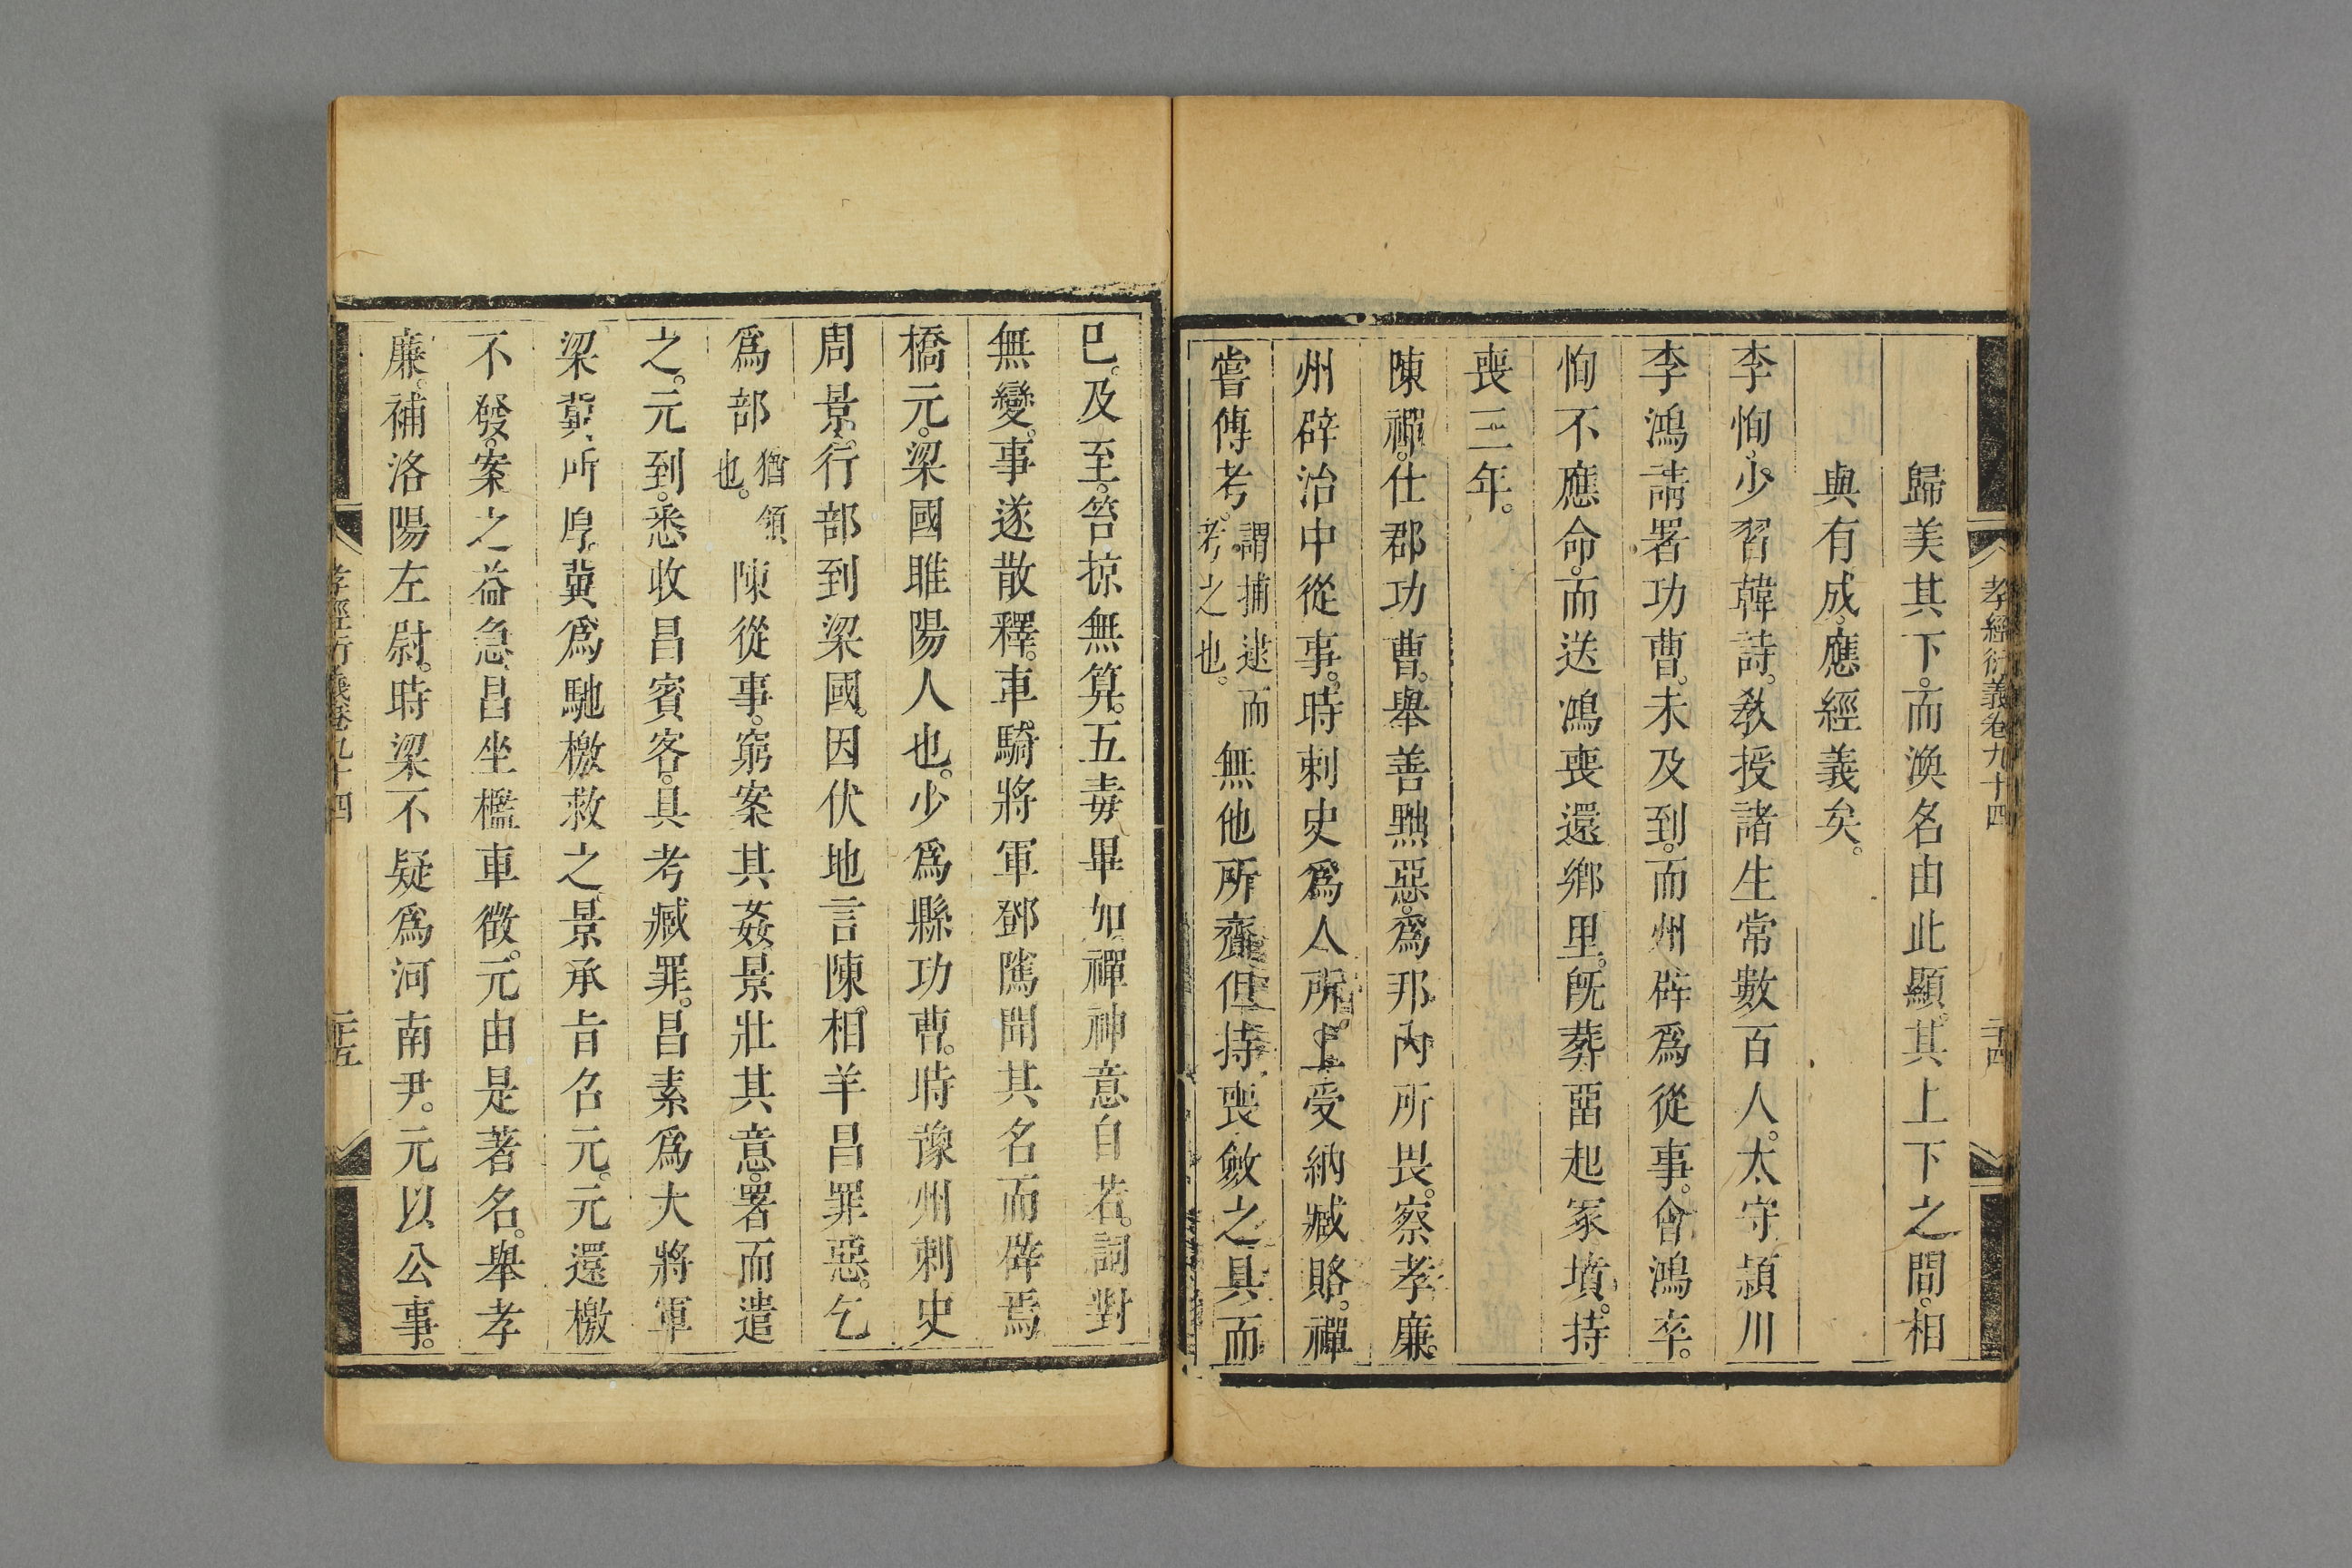 孝經衍義卷九十四
二十四
歸美其下。而渙名由此顯。其上下之間。相
與有成。應經義矣。
李恂。少習韓詩。敎授諸生常數百人。太守潁川
李鴻請署功曹。未及到。而州辟爲從事。會鴻卒。
恂不應命。而送鴻喪還鄉里。旣葬畱起冢墳。持
喪三年。
陳禪。仕郡功曹。舉善黜惡。爲邪內所畏。察孝廉。
州辟治中從事。時刺史爲人所上受納臧賂。禪
嘗傅考。謂捕逮而考之也。無他所齎但持喪斂之具而
巳。及至。笞掠無算。五毒畢加禪神意自若。詞對
無變。事遂散釋。車騎將軍鄧隲聞其名而辟焉
橋元。梁國睢陽人也。少爲縣功曹。時豫州刺史
周景。行部到梁國。因伏地言陳相羊昌罪惡。乞
爲部猶領也。陳從事。窮案其姦景壯其意。署而遣
之。元到。悉收昌賓客。具考臧罪。昌素爲大將軍
梁冀所厚。冀爲馳檄救之。景承旨召元。元還檄
不發。案之益急昌坐檻車徵。元由是著名。舉孝
廉。補洛陽左尉。時梁不疑爲河南尹。元以公事。
孝經衍義卷九十四
二十五